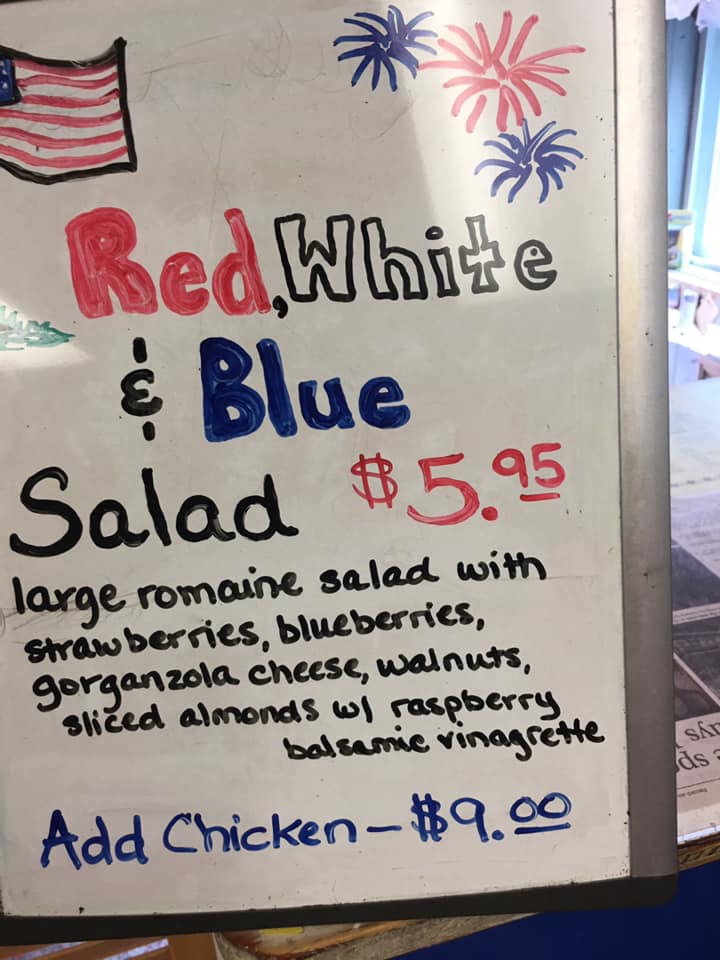 Red, White
& Blue
Salad $5.95
large romaine salad with
strawberries, blueberries,
gorganzola cheese, walnuts,
sliced almonds w/ raspberry
balsamic vinagrette
Add Chicken - $9.00